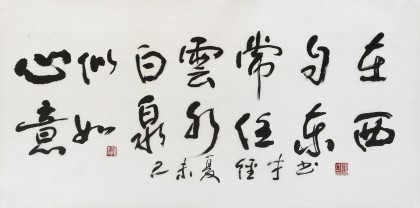 心似白雲常自在
意如泉水任東西
己未夏書